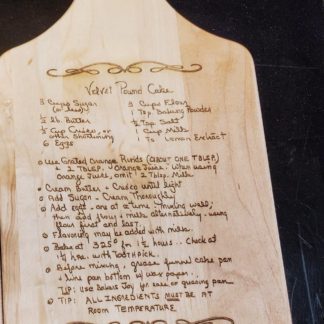 Velvet Pound Cake
3 Cups Sugar
(or less)
½ lb. Butter
½ Cup Crisco, or
other Shortening
6 Eggs
3 Cups Flour
1 Tsp. Baking Powder
½ Tsp. Salt
1 Cup Milk
1 Ts. Lemon Extract
Use Grated Orange Rinds (About one TBLSP.)
+ 2 TBLSP. Orange Juice. When using
Orange Juice, omit 2 Tblsp. Milk
Cream Butter + Crisco until light
Add Sugar - Cream Thoroughly
Add eggs - one at a time - mixing well;
then add flour + milk alternatively, using
flour first and last.
Flavoring may be added with milk.
Bake at 325° for 1½ hours.. Check at
1¼ hrs. with toothpick.
Before mixing, grease funnel cake pan
+ line pan bottom w/ wax paper.
TIP: Use Bakers Joy for ease or greasing pan.
TIP: ALL INGREDIENTS MUST BE AT
ROOM TEMPERATURE